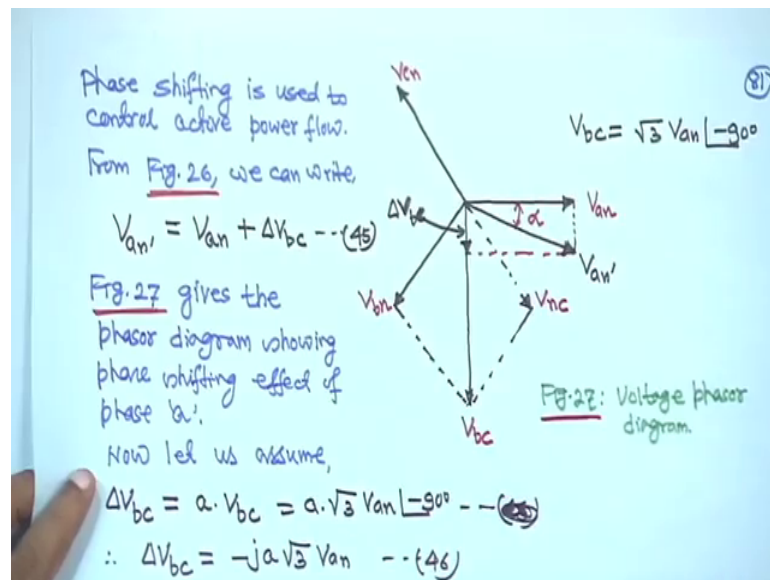 Phase shifting is used to
control active power flow.
From Fig. 26, we can write,
Van' = Van + ΔVbc --(45)
Fig. 27 gives the
phasor diagram showing
phase shifting effect of
phase 'a'.
Now let us assume,
ΔVbc = a. Vbc = a. √3 Van ∠-90° --
∴ ΔVbc = -ja√3 Van --(46)
Vcn
81
Vbc = √3 Van ∠-90°
ΔVbc
α
Van
Van'
Vbn
Vnc
Vbc
Fig. 27: Voltage phasor
diagram.